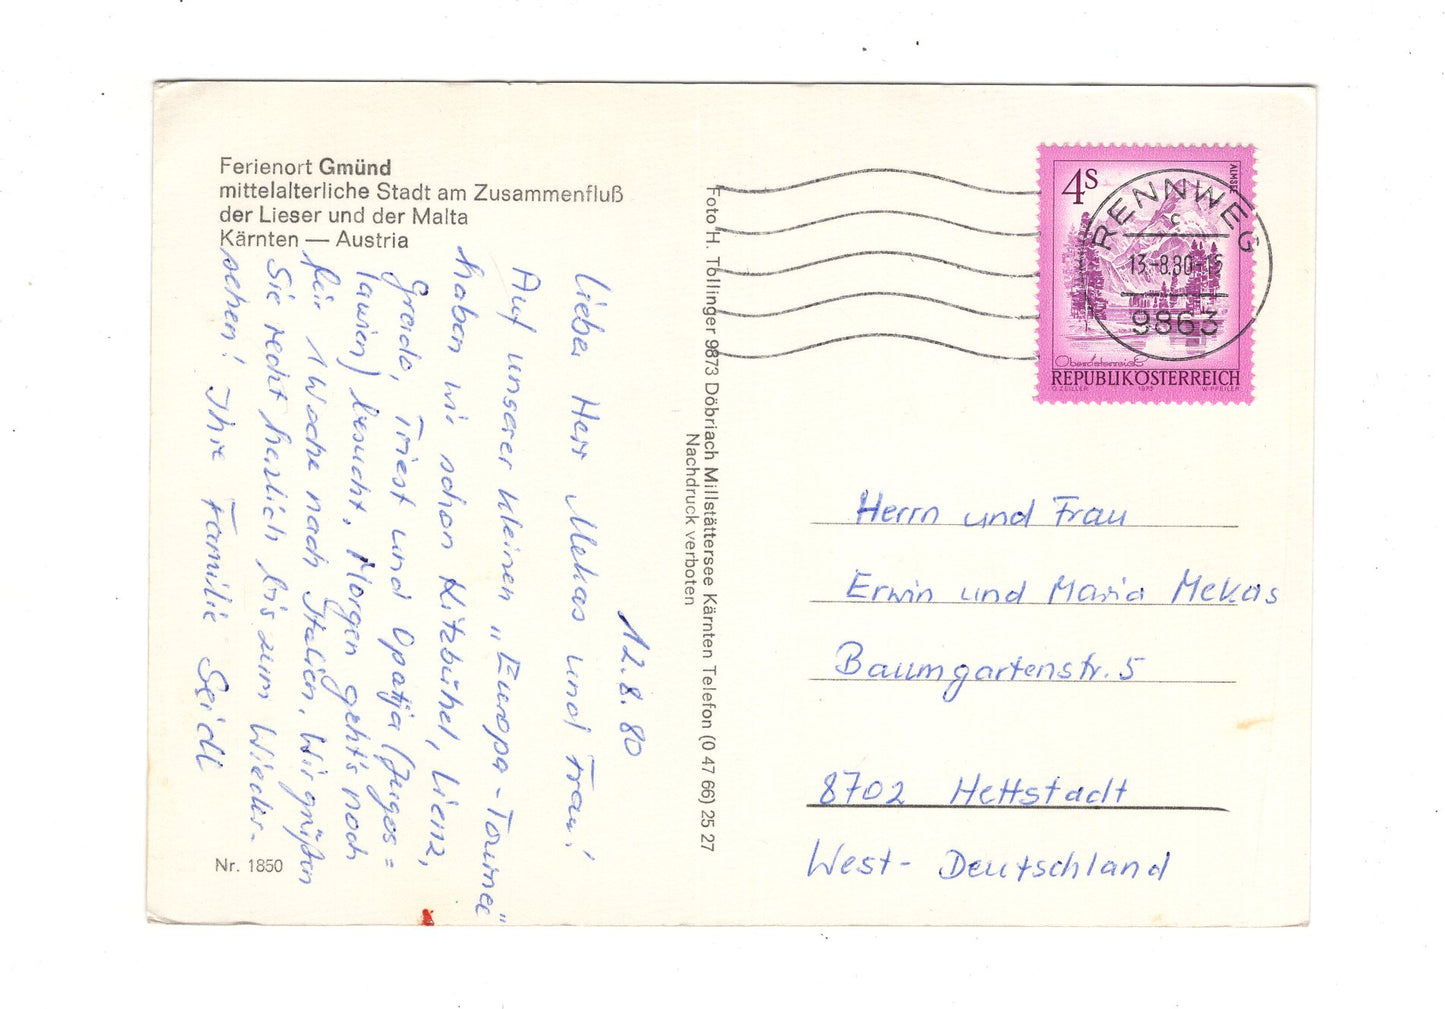 Ferienort Gmünd
mittelalterliche Stadt am Zusammenfluß
der Lieser und der Malta
Kärnten — Austria
12.8.80
Lieber Herr Mekas und Frau!
Auf unserer kleinen „Europa-Tournee"
haben wir schon Kitzbühel, Lienz,
Grado, Triest und Opatja (Jugos=
lawien) besucht. Morgen geht's noch
für 1 Woche nach Italien. Wir grüßen
Sie recht herzlich bis zum Wieder-
sehen! Ihre Familie Seidl
Nr. 1850
Foto H. Tollinger 9873 Döbriach Millstättersee Kärnten Telefon (0 47 66) 25 27
Nachdruck verboten
4S
ALMSEE
Oberösterreich
REPUBLIK ÖSTERREICH
O. ZEILLER 1973 W. PFEILER
RENNWEG
C
13.-8.80-15
9863
Herrn und Frau
Erwin und Maria Mekas
Baumgartenstr. 5
8702 Hettstadt
West-Deutschland